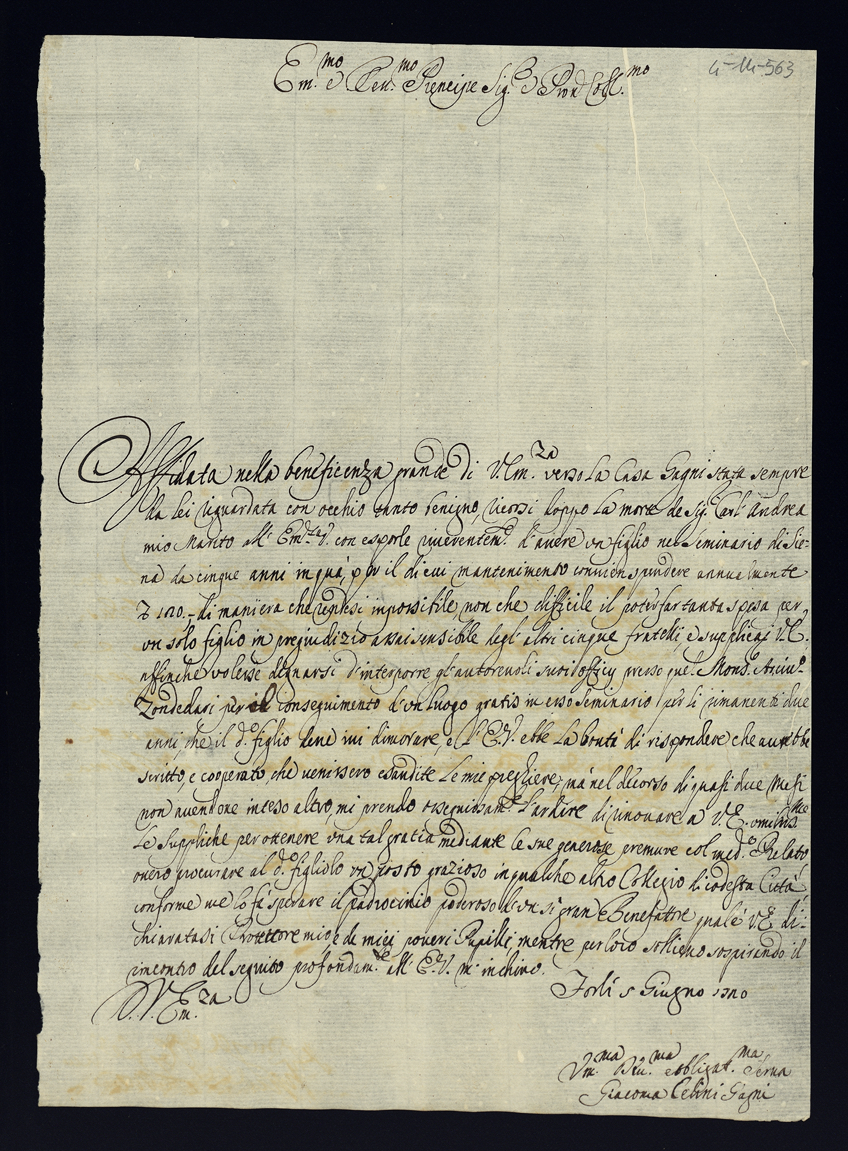 G-M-563
Em.mo e Rev.mo Principe Sig.e e Pron Coll.mo
Affidata nella beneficenza grande di V. Em.za verso la Casa Gagni stata sempre
da lei riguardata con occhio tanto benigno, ricorsi doppo la morte de Sig.r Carl'Andrea
mio Marito all' con esporle d'avere un figlio nel Seminario di Sie-
na da cinque anni in quà, p il di cui mantenimento convien spendere annualmente
di maniera che impossibile, non che difficile il poter far tanta spesa per
un solo figlio in pregiudizio assai sensibile degl'altri cinque fratelli, e supplicai V.E.
affinche volesse degnarsi d'interporre gl'autorevoli suoi offizy presso que Mons.e Arciu.o
Zondedari per il conseguimento d'un luogo gratis in esso Seminario per li rimanenti due
anni, che il d.o figlio deve ivi dimorare, e l'E.V. ebbe la bontà di rispondere che avrebbe
scritto, e cooperato, che venissero esaudite le mie preghiere, mà nel decorso di quasi due mesi
non avendone inteso altro, mi prendo ossequiosam.te l'ardire di rinovare a V.E.
le suppliche per ottenere una tal gratia mediante le sue generose premure col med.o Prelato
overo procurare al d.o figliolo un posto grazioso in qualche altro Collegio di codesta Città
conforme me lo fà sperare il padrocinio poderoso d'un si gran Benefattre qual'è V.E. di-
chiaratasi Protettore mio e de miei poveri Pupilli, mentre per loro sollievo sospirando il
rincontro del seguito profondam.te all' E.V. m'inchino.
D. V. Em.za
Forlì 5 Giugno
Um.ma Dev.ma Obbligat.ma Serva
Giacoma Gagni